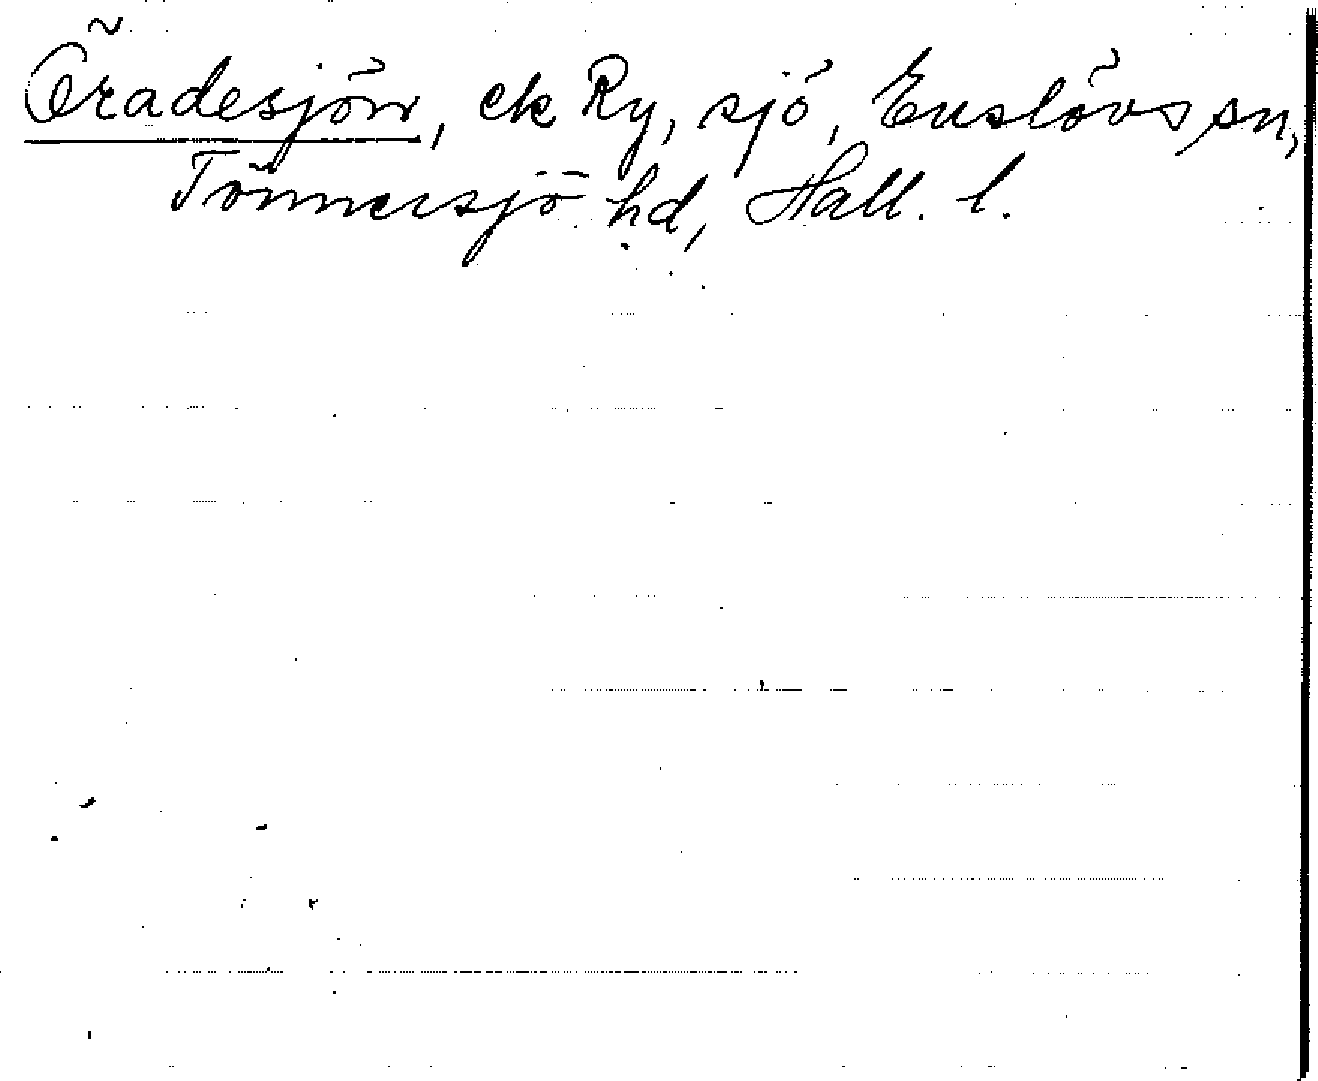 Öradesjön, ek Ry, sjö, Enslövs sn,
Tönnersjö hd, Hall. l.